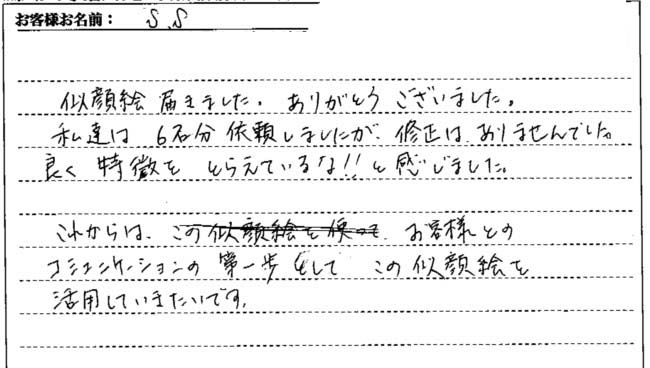 お客様お名前： S.S
似顔絵 届きました。ありがとう ございました。
私達は 6名分 依頼しましたが、修正は ありませんでした。
良く 特徴を とらえているな!!と感じました。
これからは、この似顔絵を使って、お客様との
コミュニケーションの 第一歩として この似顔絵を
活用していきたいです。